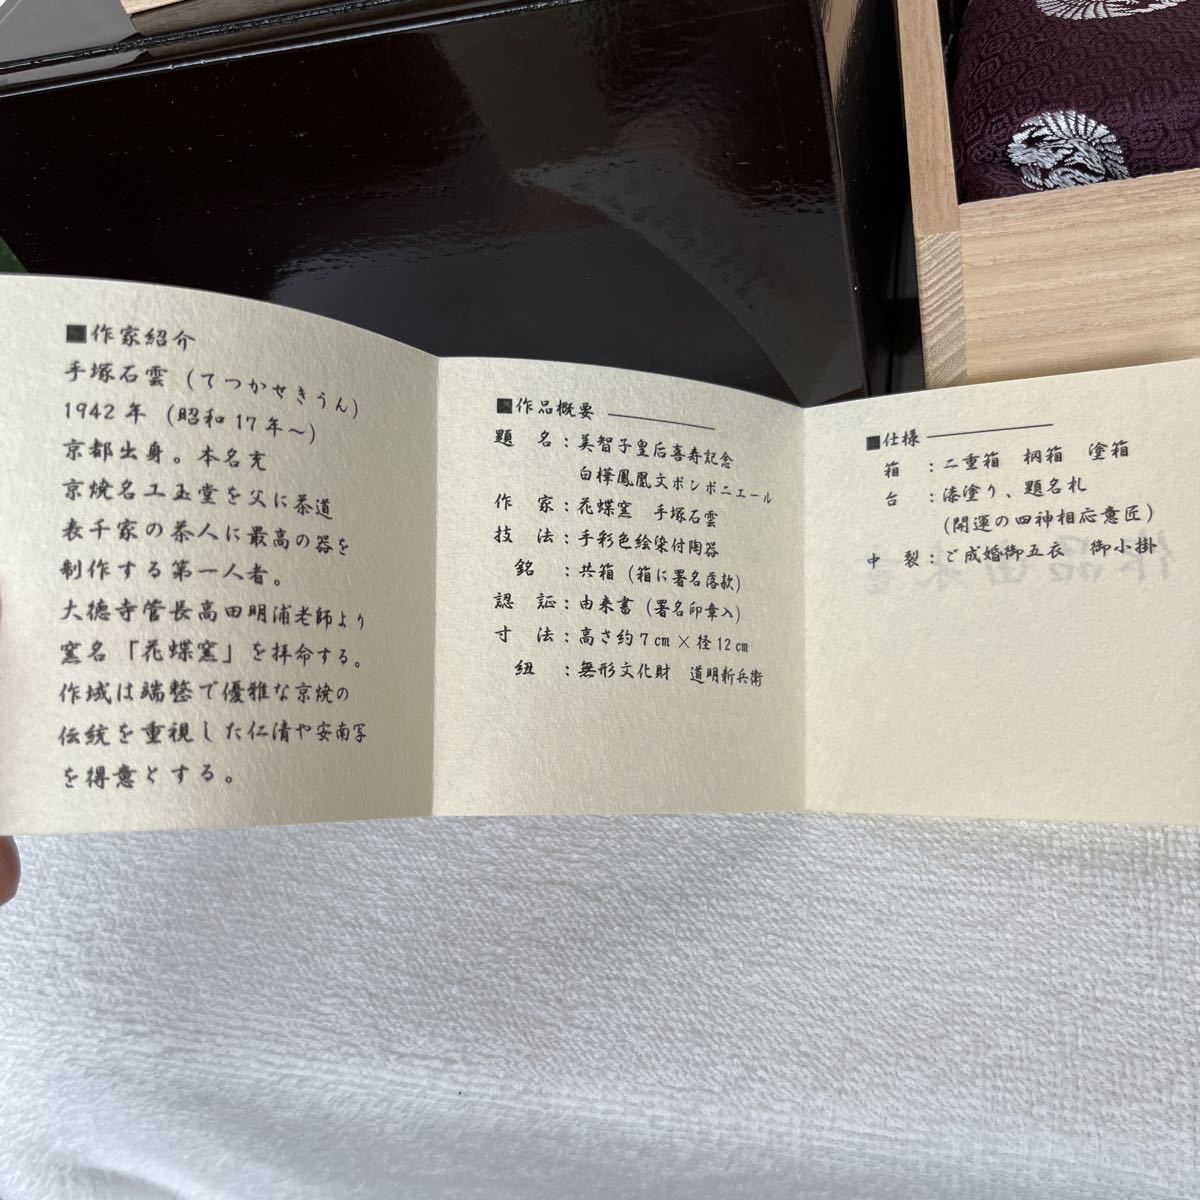 ■作家紹介
手塚石雲（てつかせきうん）
1942年（昭和17年～）
京都出身。本名充
京焼名工玉堂を父に茶道
表千家の茶人に最高の器を
制作する第一人者。
大徳寺管長高田明浦老師より
窯名「花蝶窯」を拝命する。
作域は端整で優雅な京焼の
伝統を重視した仁清や安南写
を得意とする。
■作品概要
題　名：美智子皇后喜寿記念
白樺鳳凰文ボンボニエール
作　家：花蝶窯　手塚石雲
技　法：手彩色絵染付陶器
銘　：共箱（箱に署名落款）
認　証：由来書（署名印章入）
寸　法：高さ約7cm×径12cm
紐　：無形文化財　道明新兵衛
■仕様
箱　：二重箱　桐箱　塗箱
台　：漆塗り、題名札
（開運の四神相応意匠）
中　裂：ご成婚御五衣　御小掛